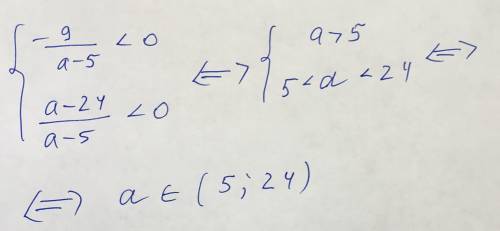 { - 9/(a-5) < 0
(a-24)/(a-5) < 0 ⇔ { a > 5
5 < a < 24 ⇔
⇔ a ∈ (5; 24)